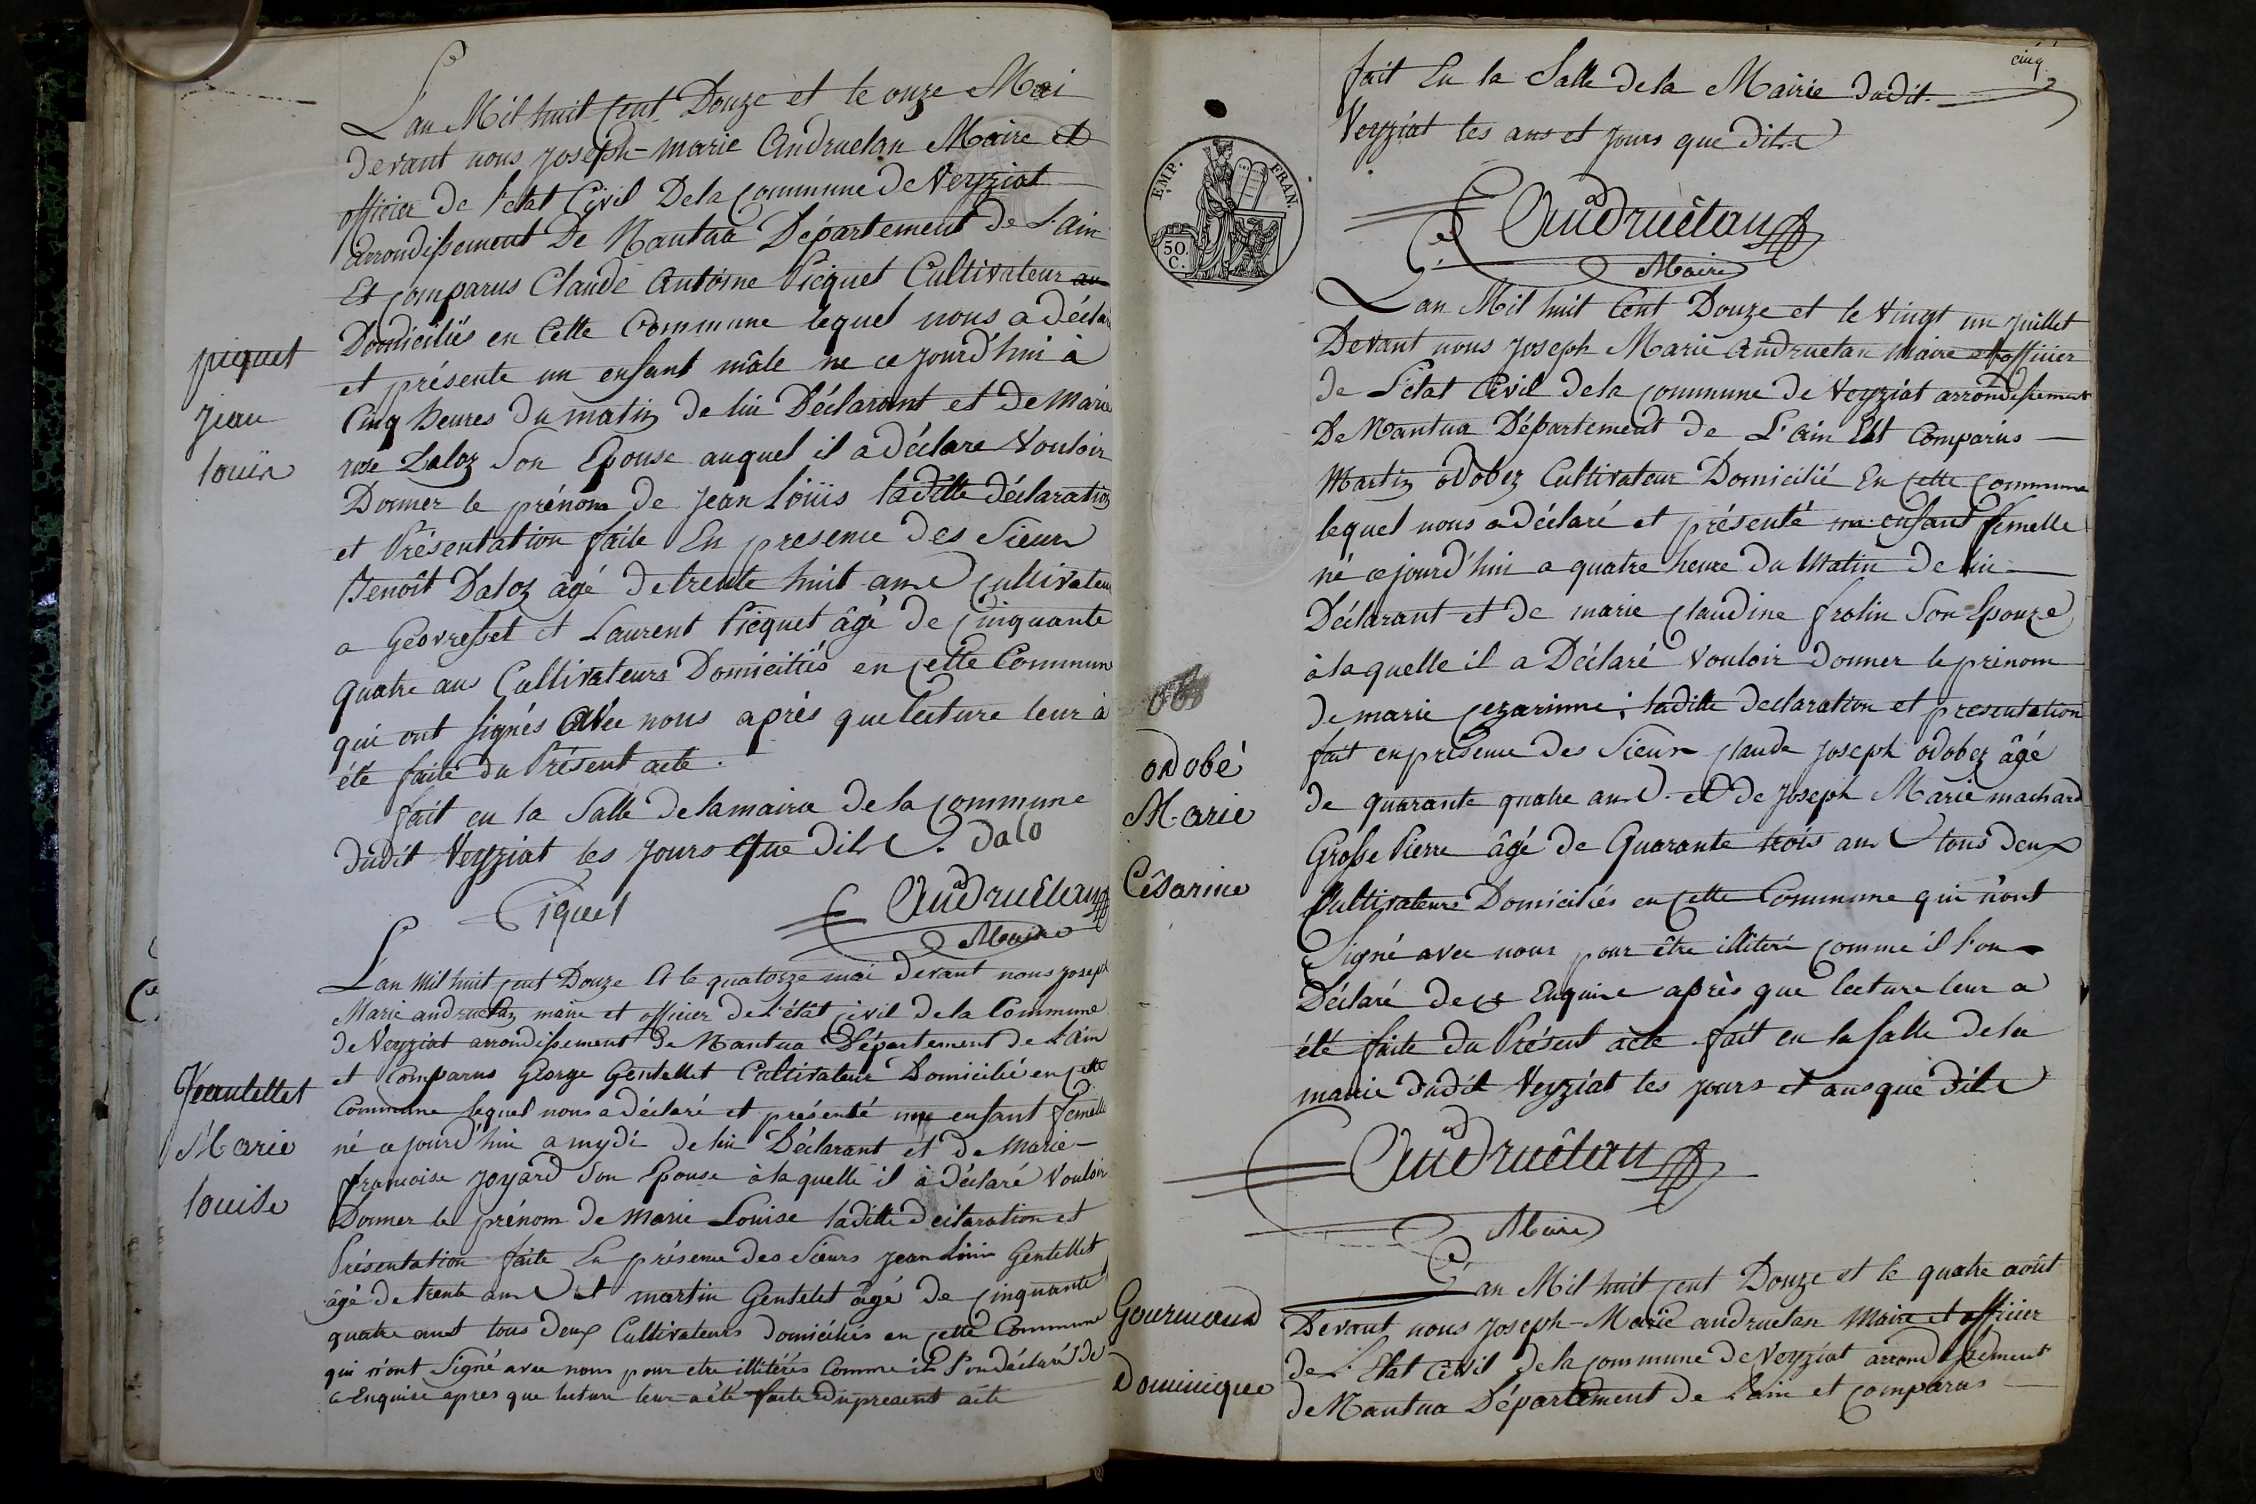 L'an Mil huit Cent Douze et le onze Mai
devant nous joseph-marie Andruetan Maire et
officier de l'etat Civil De la Commune de Veyziat
arrondissement De Nantua Département de L'ain
Et Comparus Claude Antoine Picquet Cultivateur
Domiciliés en Cette Commune lequel nous a déclaré
et présente un enfant mâle ne ce jourd'hui à
Cinq heures du matin de lui Déclarant et de Marie
rose Daloz Son Epouse auquel il a déclare Vouloir
Donner le prénom de jean Loüis ladite déclaration
et Présentation faite En presence des Sieurs
Benoît Daloz âgé de trente huit ans Cultivateur
a Geovresset et Laurent Picquet âgé de Cinquante
quatre ans Cultivateurs Domiciliés en Cette Commune
qui ont signés Avec nous après que lecture leur à
été faite du Présent acte.
fait en la Salle de la mairie de la Commune
dudit Veyziat les jours que dits Dalo
Piquet Andruetan
Maire
piquet
jean
louis
L'an Mil huit Cent Douze Et le quatorze mai devant nous joseph
Marie andruetan maire et officier de l'état Civil de la Commune
de Veyziat arrondissement de Nantua Département de L'ain
et Comparus George Gentellet Cultivateur Domicilié en Cette
Commune lequel nous a déclaré et présenté une enfant femelle
né ce jourd'hui a mydi de lui Déclarant et de Marie
francoise joyard Son Epouse à laquelle il à déclaré Vouloir
Donner le prénom de Marie Louise ladite déclaration et
Présentation faite En présence des Sieurs jean Louis Gentellet
âgé de trente ans et martin Gentelet âgé de Cinquante
quatre ans tous deux Cultivateurs domiciliés en Cette Commune
qui n'ont Signé avec nous pour etre illitérés Comme ils l'on déclaré de
ce Enquise apres que lecture leur a été faite du present acte
Jeantellet
Marie
louise
cinq
fait En la Salle de la Mairie dudit
Veyziat les ans et jours que dits
EMP. FRAN.
50
C.
Andruetan
Maire
L'an Mil huit Cent Douze et le Vingt un juillet
Devant nous Joseph Marie Andruetan Maire et officier
de L'état Civil de la Commune de Veyziat arrondissement
De Nantua Département de L'ain Est Comparus
Martin odobez Cultivateur Domicilié En Cette Commune
lequel nous a déclaré et présenté une enfant femelle
né ce jourd'hui a quatre heure du Matin de lui
Déclarant et de marie Claudine frolin Son Epouze
à laquelle il a Déclaré Vouloir donner le prinom
de marie Cezarinne; ladite declaration et presentation
fait en présence des Sieurs Claude joseph odobez âgé
de quarante quatre ans et de Joseph Marie machard
Grosse Pierre âgé de Quarante trois ans tous deux
Cultivateurs Domiciliés en Cette Commune qui n'ont
Signé avec nous pour être illitéré Comme il l'on
Déclaré de ce Enquise après que lecture leur a
été faite du Présent acte fait en la Salle de la
mairie dudit Veyziat les jours et ans que dits
Andruetan
Maire
odobé
Marie
Césarine
L'an Mil huit Cent Douze et le quatre août
Devant nous joseph-Marie andruetan Maire et officier
de L'Etat Civil de la Commune de Veyziat arrondissement
de Nantua Département de L'ain et Comparus
Gourmand
Dominique